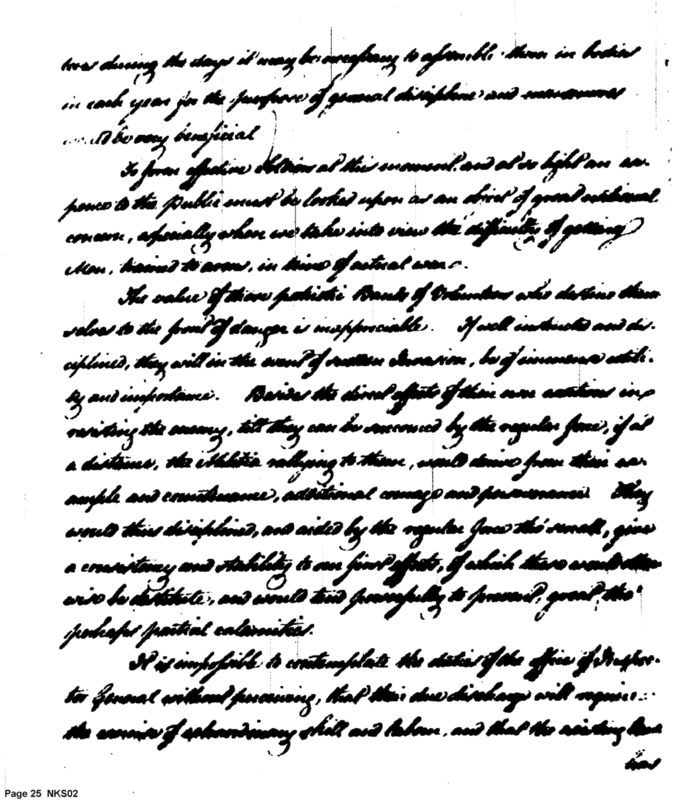 tion during the days it may be necessary to assemble them in bodies
in each year for the purpose of general discipline and manoeuvres
would be very beneficial
To form effective Soldiers at this moment and at so light an ex-
pence to the Public must be looked upon as an object of great national
concern, especially when we take into view the difficulties of getting
Men, trained to arms, in time of actual war.
The value of these patriotic Bands of Volunteers who destine them
selves to the front of danger is inappreciable. If well instructed and dis-
ciplined, they will in the event of sudden Invasion, be of immense utili-
ty and importance. Besides the direct effects of their own exertions in
resisting the enemy, till they can be succoured by the regular force, if at
a distance, the Militia rallying to them, would derive from their ex-
ample and countenance, additional courage and perseverance They
would thus disciplined, and aided by the regular force tho' small, give
a consistency and stability to our first efforts, of which these would other
wise be destitute, and would tend powerfully to prevent, great, tho'
perhaps partial calamities.
It is impossible to contemplate the duties of the office of Inspec-
tor General without perceiving, that their due discharge will require
the exercise of extraordinary skill and labour, and that the existing law
has
Page 25 NKS02